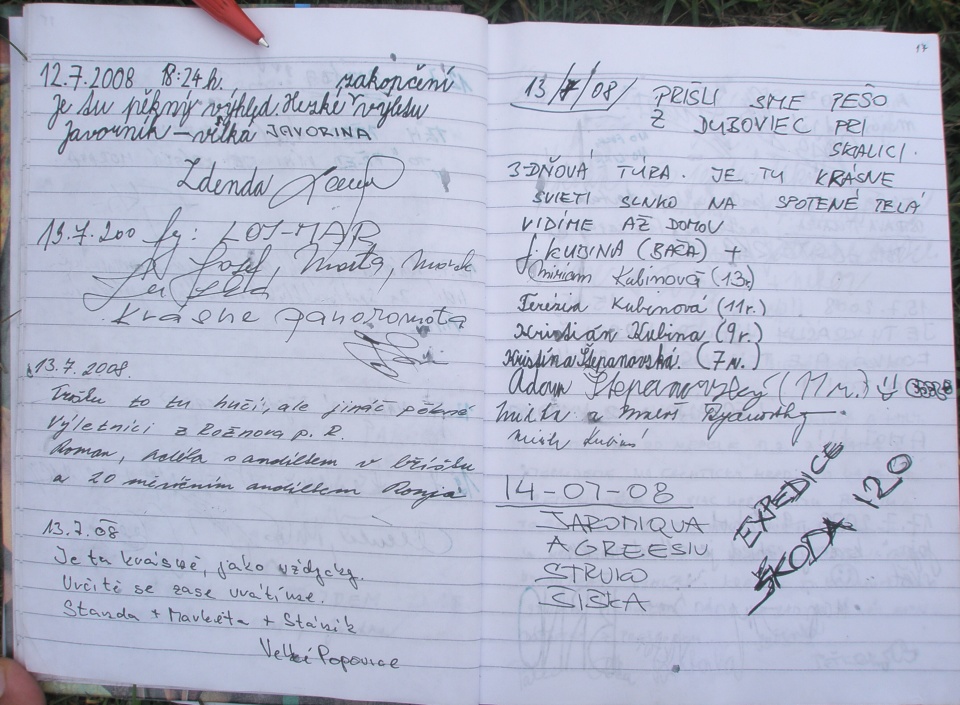 12.7.2008 18:24h. zakončení
Je tu pěkný výhled. Hezké výletu
Javorník – velká JAVORINA
Zdenda
13.7.200 LOJ-MAR
Josef, Marta, Marek
Krásne panoromata
13.7.2008.
Trošku to tu hučí, ale jináč pěkné
Výletníci z Rožnova p. R.
Roman, Adéla s andílkem v bříšku
a 20 měsíčním andílkem Ronja
13.7.08
Je tu krásně, jako vždycky.
Určitě se zase vrátíme.
Standa + Markéta + Stáník
Velké Popovice
17
13/7/08/ PRISLI SME PEŠO
Z DUBOVIEC PRI
SKALICI.
3-DŇOVÁ TÚRA. JE TU KRÁSNE
SVIETI SLNKO NA SPOTENÉ TELÁ
VIDÍME AŽ DOMOV
J. KUBINA (BAČA) +
Miriam Kubinová (13r.)
Terézia Kubinová (11r.)
Kristián Kubina (9r.)
Kristína Štepanovská. (7r.)
Adam Štepanovský (11r.)
14-07-08
JAROMIQUA
AGREESIU
STRUKO
SISKA
EXPEDICE
ŠKODA 120